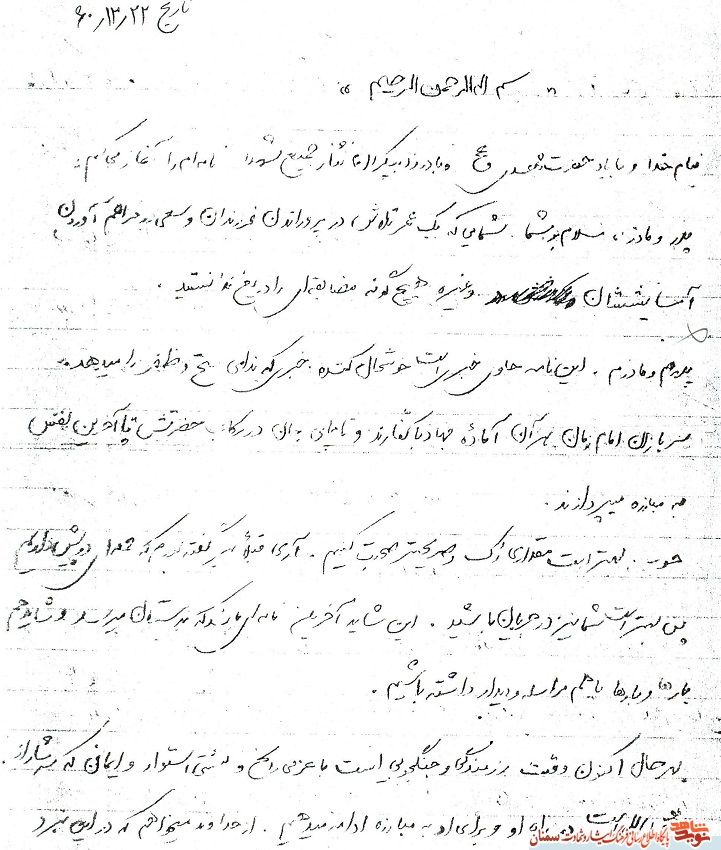 تاریخ ۶۰/۱۲/۲۲
" بسم الله الرحمن الرحیم "
بنام خدا و با یاد حضرت مهدی عج و با درود بیکران نثار جمیع شهدا نامه‌ام را آغاز میکنم.
پدر و مادر، سلام بر شما. شمایی که یک عمر تلاش در پروراندن فرزندان و سعی در فراهم آوردن
آسایششان وغیره هیچ گونه مضایقه‌ای را دریغ ندانستید.
پدرم و مادرم. این نامه حاوی خبری است خوشحال کننده خبری که ندای فتح و ظفر را میدهد.
سربازان امام زمان هر آن آماده جهاد با کفارند و تا پای جان در رکاب حضرتش تا آخرین نفس
به مبارزه میپردازند.
خوب. بهتر است مقداری رک و صریحتر صحبت کنیم. آری قبلاً نیز گفته بودم که حمله‌ای در پیش داریم
پس بهتر است شما نیز در جریان باشید. این شاید آخرین نامه‌ای باشد که بدستتان میرسد و شاید هم
بارها و بارها با هم مراسله و دیدار داشته باشیم.
بهر حال اکنون وقت رزمندگی و جنگجویی است با عزمی راسخ و مشتی استوار و ایمانی که سرشار از
الله است در راه او و برای او به مبارزه ادامه میدهیم. از خداوند میخواهم که در این نبرد
نوید شاهد
پایگاه اطلاع رسانی فرهنگ ایثار و شهادت سمنان